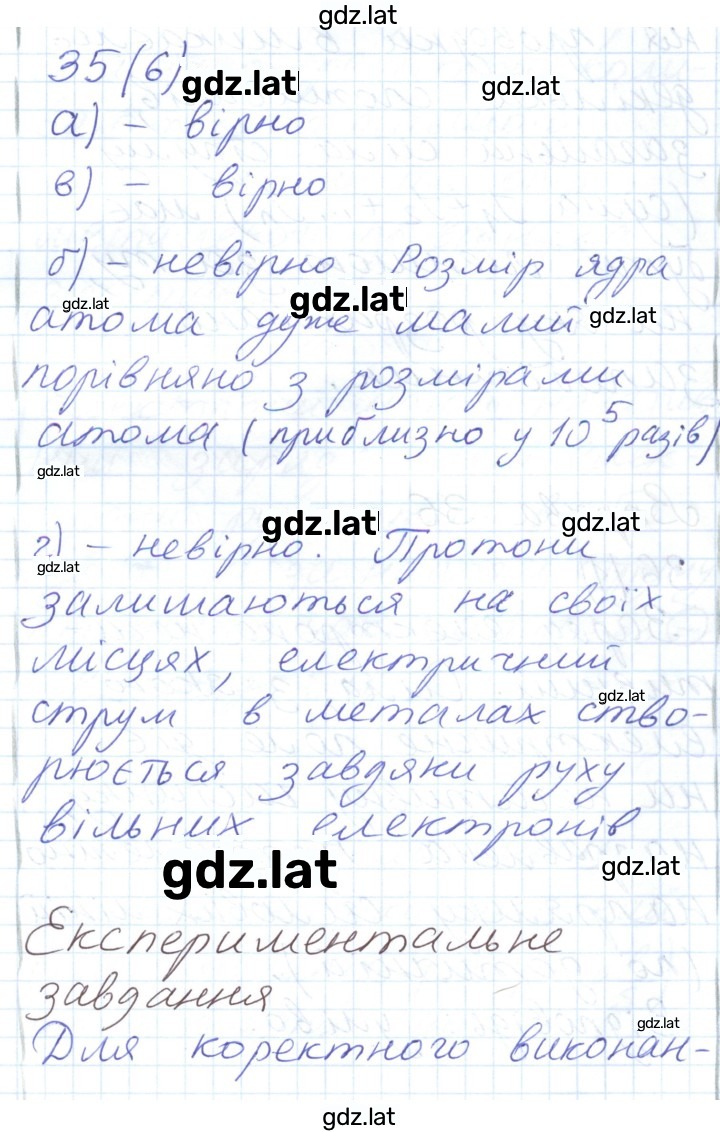 gdz.lat
35(6)
gdz.lat
gdz.lat
а) – вірно
в) – вірно
б) – невірно Розмір ядра
gdz.lat
gdz.lat
gdz.lat
атома дуже малий
порівняно з розмірами
атома (приблизно у 10⁵ разів)
gdz.lat
gdz.lat
gdz.lat
г) – невірно. Протони
gdz.lat
залишаються на своїх
місцях, електричний
gdz.lat
струм в металах ство-
рюється завдяки руху
вільних електронів
gdz.lat
gdz.lat
Експериментальне
завдання
gdz.lat
Для коректного виконан-
gdz.lat